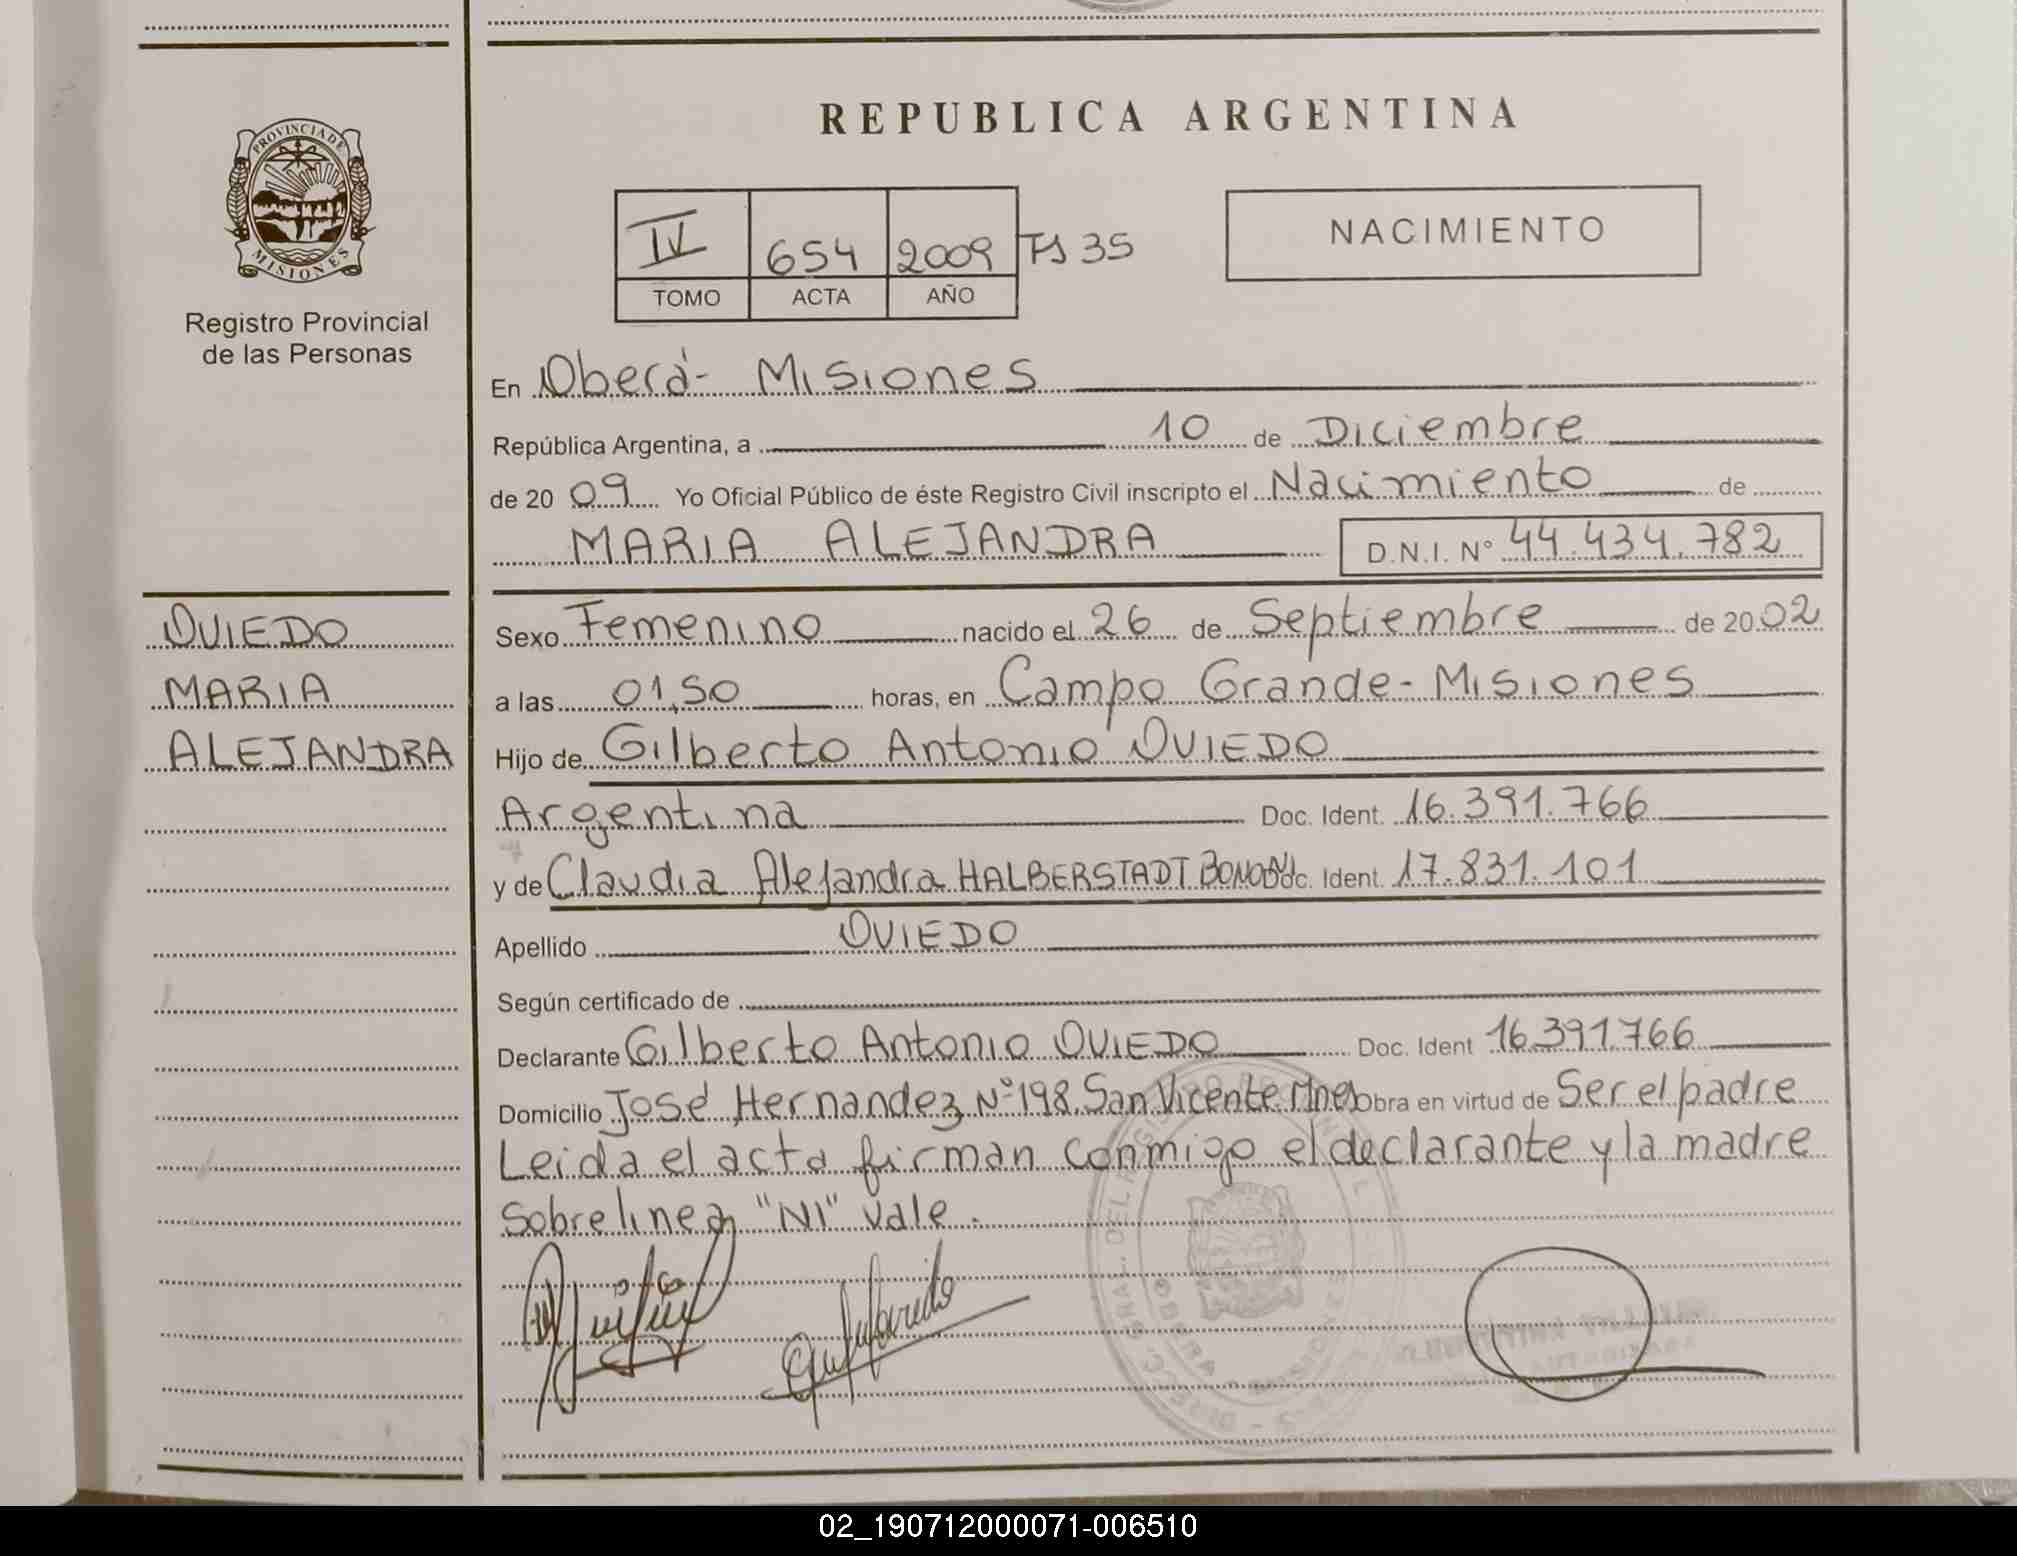 REPUBLICA ARGENTINA
PROVINCIA DE
MISIONES
Registro Provincial
de las Personas
IV 654 2009 Fs 35
TOMO ACTA AÑO
NACIMIENTO
En Oberá - Misiones
República Argentina, a 10 de Diciembre
de 20 09 Yo Oficial Público de éste Registro Civil inscripto el Nacimiento de
MARIA ALEJANDRA D.N.I. N° 44.434.782
OVIEDO
MARIA
ALEJANDRA
Sexo Femenino nacido el 26 de Septiembre de 20 02
a las 01,50 horas, en Campo Grande - Misiones
Hijo de Gilberto Antonio OVIEDO
Argentina Doc. Ident. 16.391.766
y de Claudia Alejandra HALBERSTADT Doc. Ident. 17.831.101
Apellido OVIEDO
Según certificado de
Declarante Gilberto Antonio OVIEDO Doc. Ident 16.391.766
Domicilio José Hernandez N° 198. San Vicente Mnes Obra en virtud de Ser el padre
Leida el acta firman conmigo el declarante y la madre
Sobrelinea "NI" vale.
02_190712000071-006510